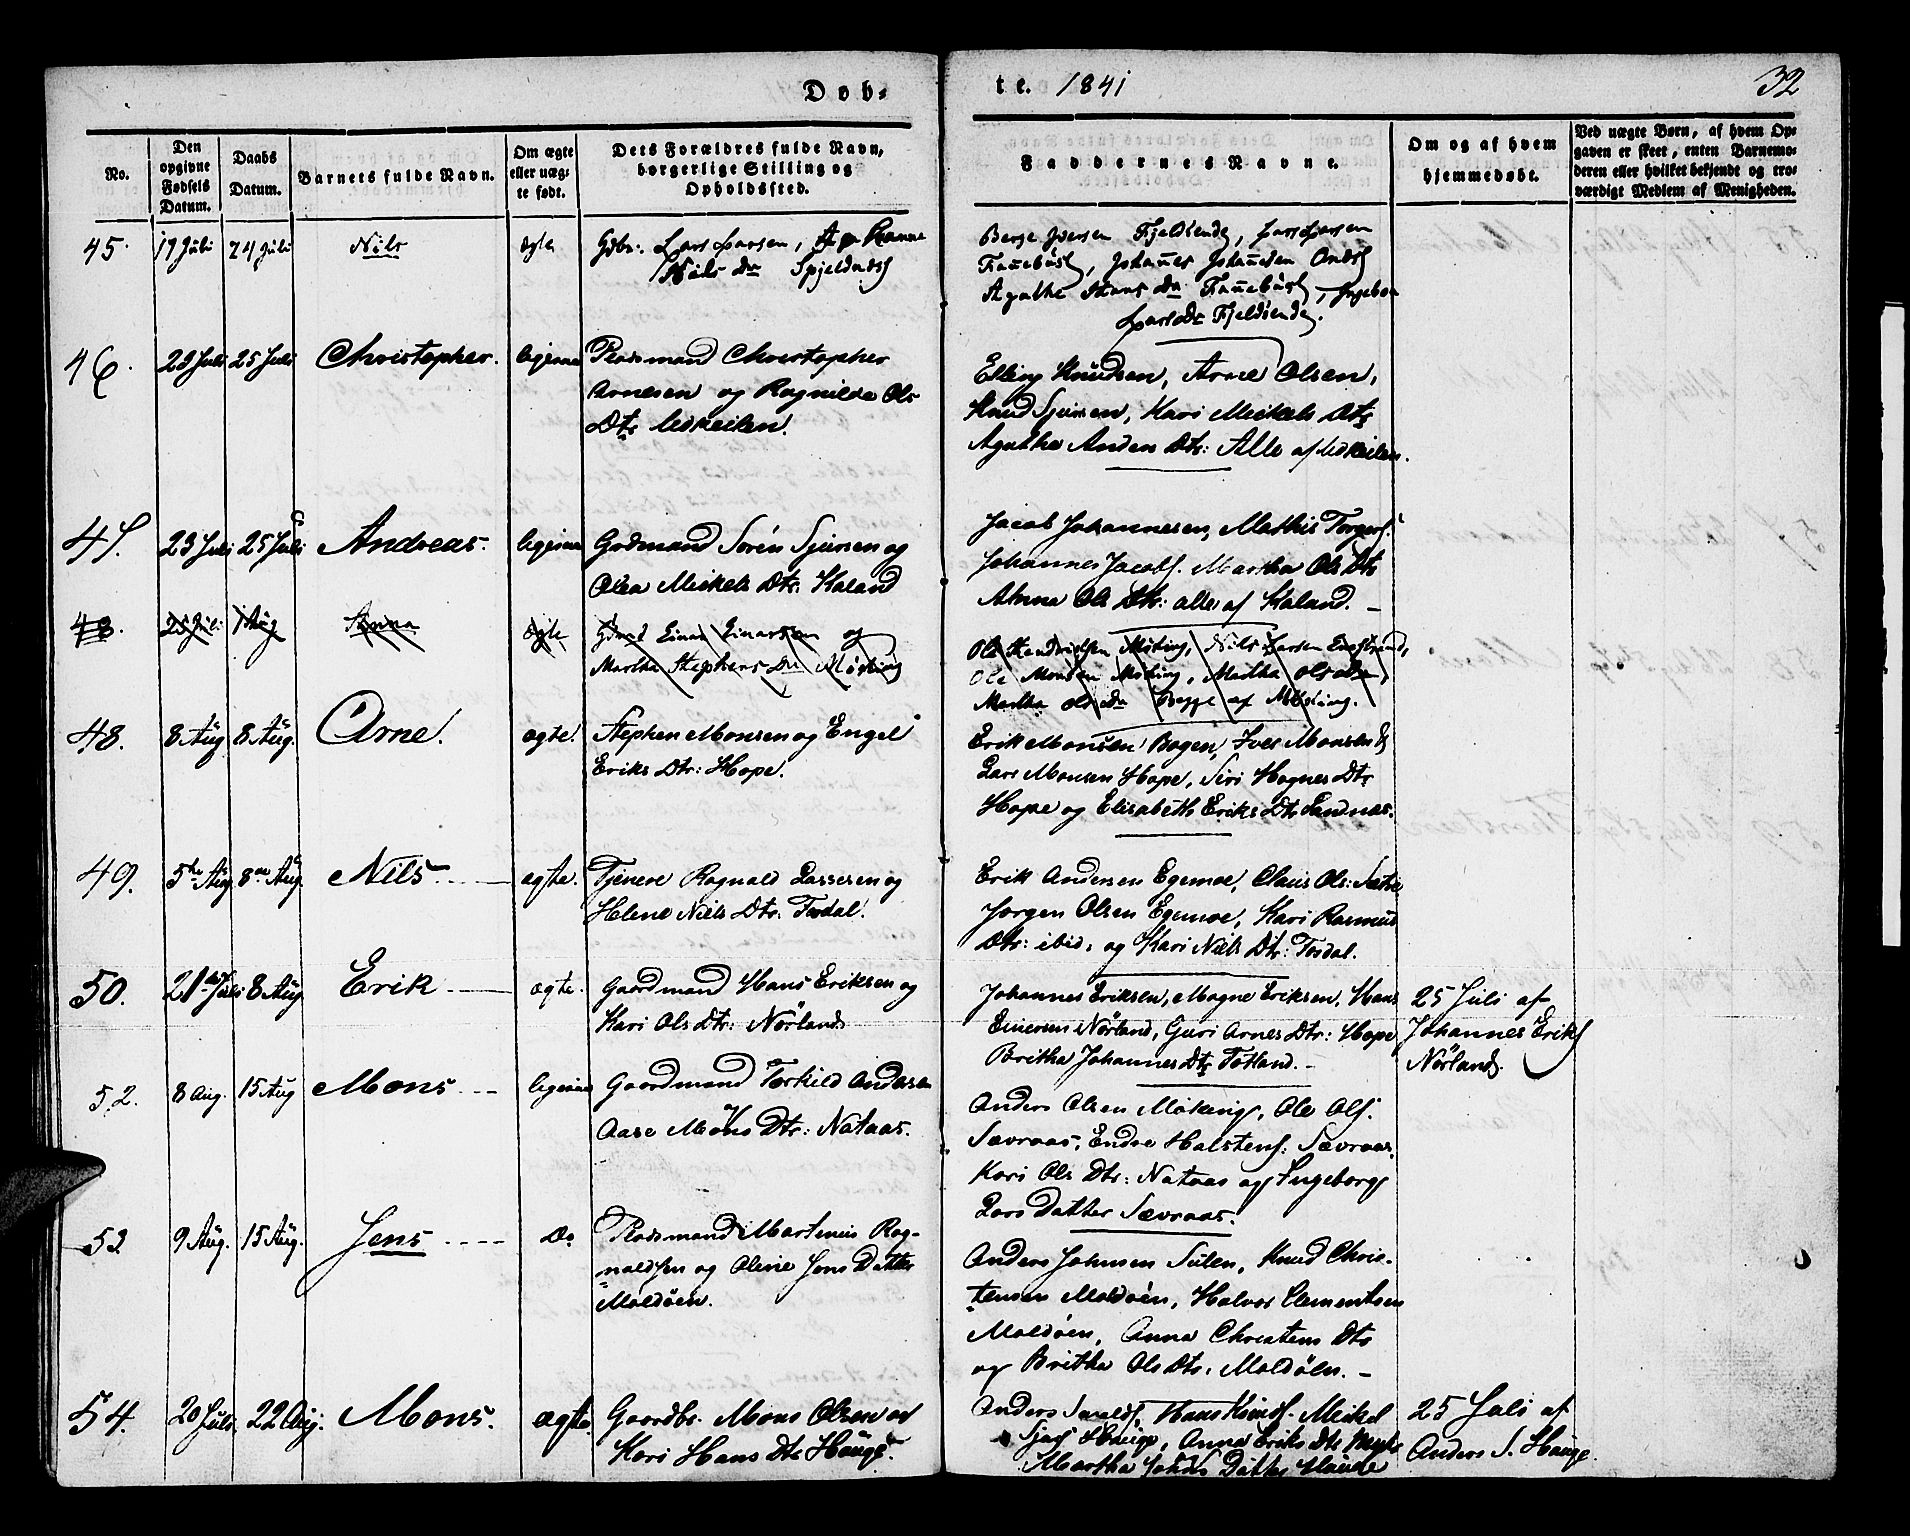 Døb- te. 1841 32
No.
Den opgivne Fødsels Datum.
Daabs Datum.
Barnets fulde Navn.
Om ægte eller uægte født.
Dets Forældres fulde Navn, borgerlige Stilling og Opholdssted.
Faddernes Navne.
Om og af hvem hjemmedøbt.
Ved uægte Børn, af hvem Opgaven er skeet, enten Barnemoderen eller hvilket bekjendt og troværdigt Medlem af Menigheden.
45. 17 Juli 24 Juli Nils ægte Gdbr: Lars Larsen,
Nils Dr
Berge Iversen
Johannes Johannesen
Agathe Hans Dr
Lars Dr
46. 23 Juli 25 Juli Christopher. ligesaa Pladsmand Christopher
Arnesen og Ragnilde Ols
Dtr Udkeilen.
Elling Knudsen, Arne Olsen,
Knud Sjursen, Kari Mickels Dtr
Agatha Anders Dtr: Alle af Udkeilen.
47. 23 Juli 25 Juli Andreas. ligesaa Grdmand Sørén Sjursen og
Olea Mickels Dtr: Kaland
Jacob Johannesen, Mathis Torgers:
Johannes Jacobs. Martha Ols Dtr
Anna Ols Dtr: alle af Kaland. —
48. 25 Juli 1 Aug Anna ægte Gdmd Einar Einarssen og
Martha Stephens Dr Møking
Ole Hendriksen Møking, Nils Larsen
Ole Monsen Møking, Martha Ols
Martha Ols Dr Begge af Møking.
48. 8 Aug 8 Aug. Arne. ægte. Stephen Monsen og Engel
Eriks Dtr: Hope.
Erik Monsen Bogen, Iver Monsen &
Lars Monsen Hope, Siri Hagnes Dtr
Hope og Elisabeth Eriks Dtr Sandnæs.
49. 5te Aug. 8de Aug. Nils ægte. Tjenere Ragnald Lassesen og
Helene Niels Dtr: Tosdal.
Erik Andersen Egemoe, Claus Ols: Sætre
Jørgen Olsen Egemoe, Kari Rasmus
Dtr: ibid, og Kari Niels Dtr: Tosdal.
50. 21de Juli 8 Aug. Erik ægte. Gaardmand Hans Eriksen og
Kari Ols Dtr: Nörland
Johannes Eriksen, Magne Eriksen, Hans
Einersen Nörland, Guri Arnes Dtr: Hope
Britha Johannes Dtr Totland. —
25 Juli af
Johannes Eriks
Nörland.
52. 8 Aug. 15 Aug Mons ligesaa Gaardmand Torkild Andersen
og
Aase Mons Dtr: Nataas.
Anders Olsen Møking, Ole Ols.
Sævraas, Endre Halstens: Sævraas.
Kari Ols Dtr: Nataas og Ingeborg
Lars Datter Sævraas.
53 9 Aug. 15 Aug. Jens Do Pladsmand Martinus Rag-
naldsen og Oline Jens Datter
Moldöen.
Anders Johnsen Sulen, Knud Chris-
tensen Moldöen, Halvor Clementsen
Moldöen, Anna Christens Dtr
og Britha Ols Dtr. Moldöen. —
54. 20 Juli 22 Aug. Mons. ægte. Gaardbr. Mons Olsen og
Kari Hans Dtr Hauge.
Anders Hans Knuds. Mickel
Hauge, Anna Eriks Dtr
Martha Johns Datter Hauge
25 Juli af
Anders S. Hauge.